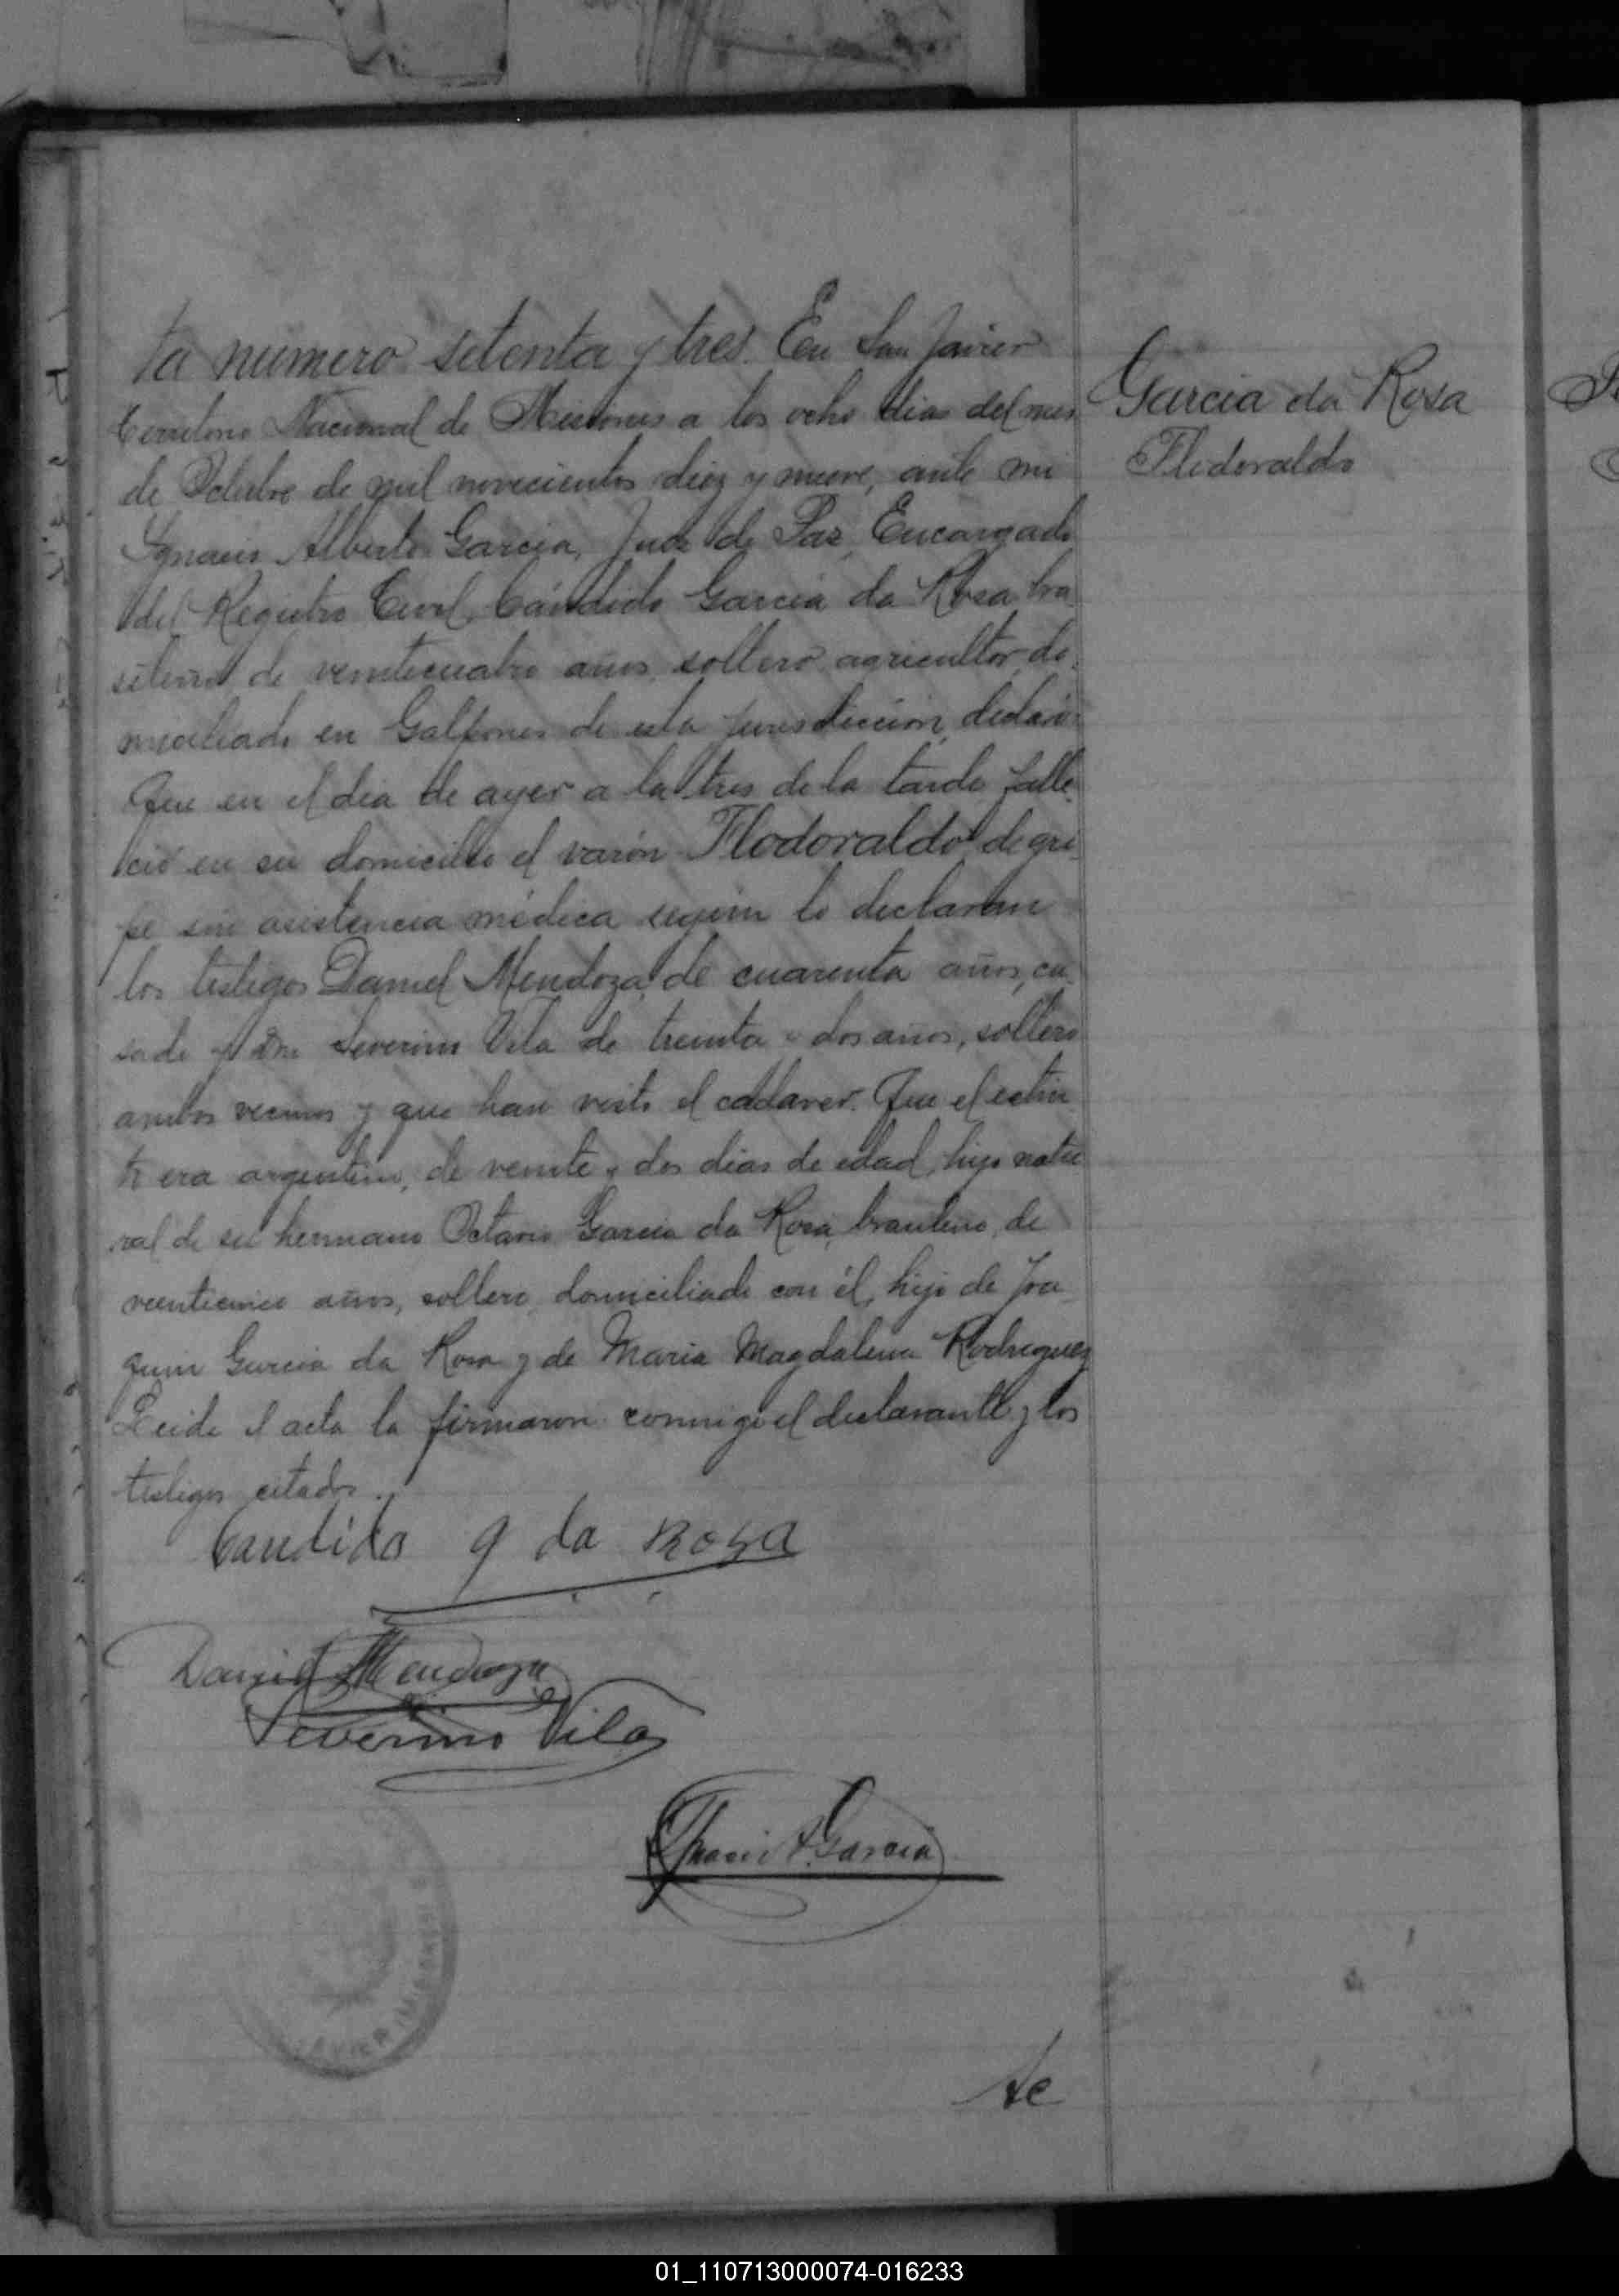 ta número setenta y tres. En San Javier
Territorio Nacional de Misiones a los ocho dias del mes
de Octubre de mil novecientos diez y nueve, ante mi
Ygnacio Alberto Garcia, Juez de Paz, Encargado
del Registro Civil, Cándido Garcia da Rosa, bra
silero, de veinticuatro años, soltero, agricultor, do
miciliado en Galpones de esta jurisdicción, declaró:
Que en el dia de ayer a la tres de la tarde falle
ció en su domicilio el varón Flodoraldo de gri
pe sin asistencia médica según lo declararon
los testigos Daniel Mendoza, de cuarenta años, ca
sado y Severino Vila de treinta y dos años, soltero
ambos vecinos y que han visto el cadaver. Que el extin
to era argentino, de veinte y dos dias de edad, hijo natu
ral de su hermano Octavio Garcia da Rosa, brasilero, de
veinticinco años, soltero, domiciliado con él, hijo de Joa
quin Garcia da Rosa y de Maria Magdalena Rodriguez
Leida el acta la firmaron conmigo el declarante y los
testigos citados.
Candido g da Rosa
Daniel Mendoza
Severino Vila
Ygnacio A. Garcia
JAVIER (MISIONES)
Ac
Garcia da Rosa
Flodoraldo
01_110713000074-016233